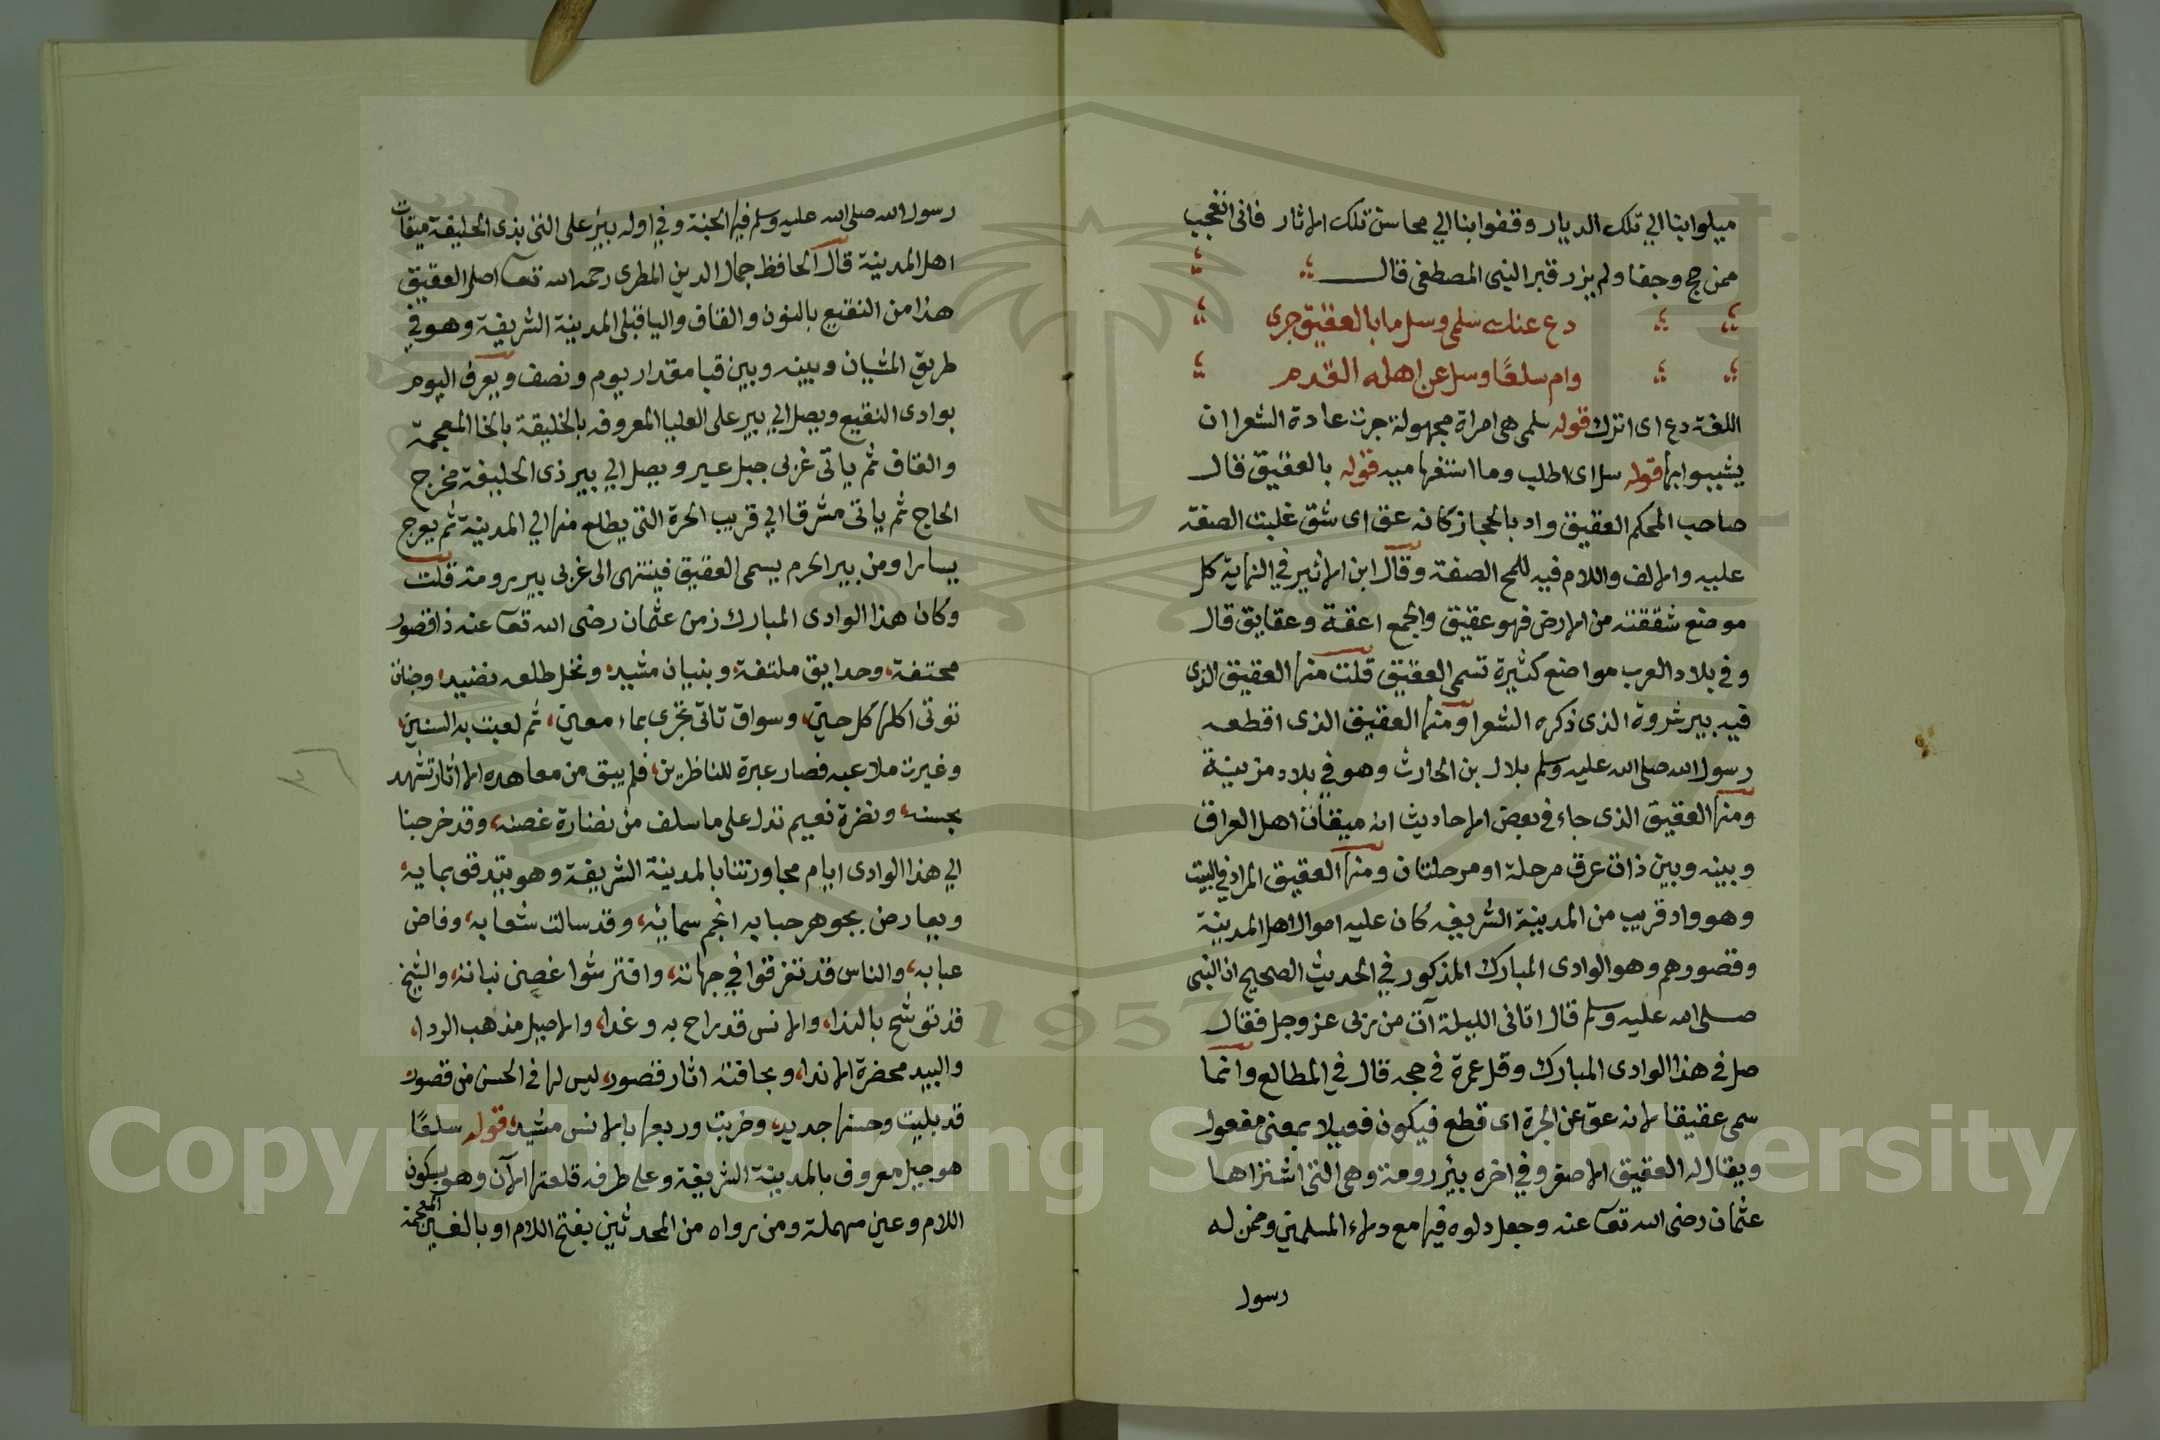 ميلوا بنا الي تلك الديار وقفوا بنا الي محاسن تلك الاثار فانى اتعجب
ممن حج وجفا ولم يزر قبر النبى المصطفى قال
دع عنك سلمى وسل ما بالعقيق جرى
وام سلعًا وسل عن اهله القدم
اللغة دع اى اترك قوله سلمى هى امراة مجهولة جرت عادة الشعرا ان
يشببوا بها قوله سل اى اطلب وما استفهامية قوله بالعقيق قال
صاحب المحكم العقيق واد بالحجاز كانه عق اى شق غلبت الصفة
عليه والالف واللام فيه للمح الصفة وقال ابن الاثير في النهاية كل
موضع شققته من الارض فهو عقيق والجمع اعقة وعقايق قال
وفي بلاد العرب مواضع كثيرة تسمى العقيق قلت منها العقيق الذى
فيه بير ثروة الذى ذكره الشعرا ومنها العقيق الذى اقطعه
رسول الله صلى الله عليه وسلم بلال بن الحارث وهو في بلاد مزينة
ومنها العقيق الذى جاء في بعض الاحاديث انه ميقات اهل العراق
وبينه وبين ذات عرق مرحلة او مرحلتان ومنها العقيق المراد في البيت
وهو واد قريب من المدينة الشريفه كان عليه اموال اهل المدينة
وقصورهم وهو الوادى المبارك المذكور في الحديث الصحيح ان النبى
صلى الله عليه وسلم قال اتانى الليلة آت من ربى عز وجل فقال
صل في هذا الوادى المبارك وقل عمرة في حجه قال في المطالع وانما
سمى عقيقا لانه عق عن الحرة اى قطع فيكون فعيلا بمعنى مفعول
ويقال له العقيق الاصغر وفي اخره بئر رومة وهى التى اشتراها
عثمان رضى الله تعا عنه وجعل دلوه فيها مع دلاء المسلمين وضمن له
رسول
رسول الله صلى الله عليه وسلم فيها الجنة وفي اوله بير على التى بذى الحليفة ميقات
اهل المدينة قال الحافظ جمال الدين المطرى رحمه الله تعا اصل العقيق
هذا من النقيع بالنون والقاف واليا قبلى المدينة الشريفة وهو في
طريق المشيان وبينه وبين قبا مقدار يوم ونصف ويعرف اليوم
بوادى النقيع ويصل الي بير على العليا المعروفه بالخليقة بالخا المعجمة
والقاف ثم ياتى غربى جبل عير ويصل الي بير ذى الحليفة مخرج
الحاج ثم ياتى مشرقا الي قريب الحرة التى يطلع منها الي المدينة ثم يعرج
يسارا ومن بير الحرم يسمى العقيق فينتهى الى غربى بير رومة قلت
وكان هذا الوادى المبارك زمن عثمان رضى الله تعا عنه ذا قصور
محتفة، وحدايق ملتفة، وبنيان مشيد، ونخل طلعه نضيد، وجنان
تؤتى اكلها كل حين، وسواق تاتى تجرى بماء معين، ثم لعبت به السنين،
وغيرت ملاعبه فصار عبرة للناظرين، فلم يبق من معاهده الا اثار تشهد
بحسنه، ونضرة نعيم تدل على ما سلف من نضارة غصنه، وقد خرجنا
الي هذا الوادى ايام مجاورتنا بالمدينة الشريفة وهو يتدفق بمايه،
ويعارض بجوهر حبابه انجم سمائه، وقد سالت شعابه، وفاض
عبابه، والناس قد تفرقوا في جهاته، وافترشوا غصنى نباته، والشيخ
قد توشح بالندا، والانس قد راح به وغدا، والاصيل مذهب الردا،
والبيد مخضرة الاندا، وبحافته اثار قصور، ليس لها في الحسن من قصور
قد بليت وحسنها جديد، وخربت وربعها بالانس مشيد، قوله سلعًا
هو جبل معروف بالمدينة الشريفة وعلى طرفه قلعتها الآن وهو بسكون
اللام وعين مهملة ومن رواه من المحدثين بفتح اللام او بالغين المعجمة
Copyright © King Saud University
1957